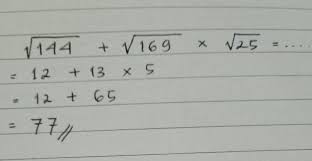 √144 + √169 × √25 = ....
= 12 + 13 × 5
= 12 + 65
= 77 //